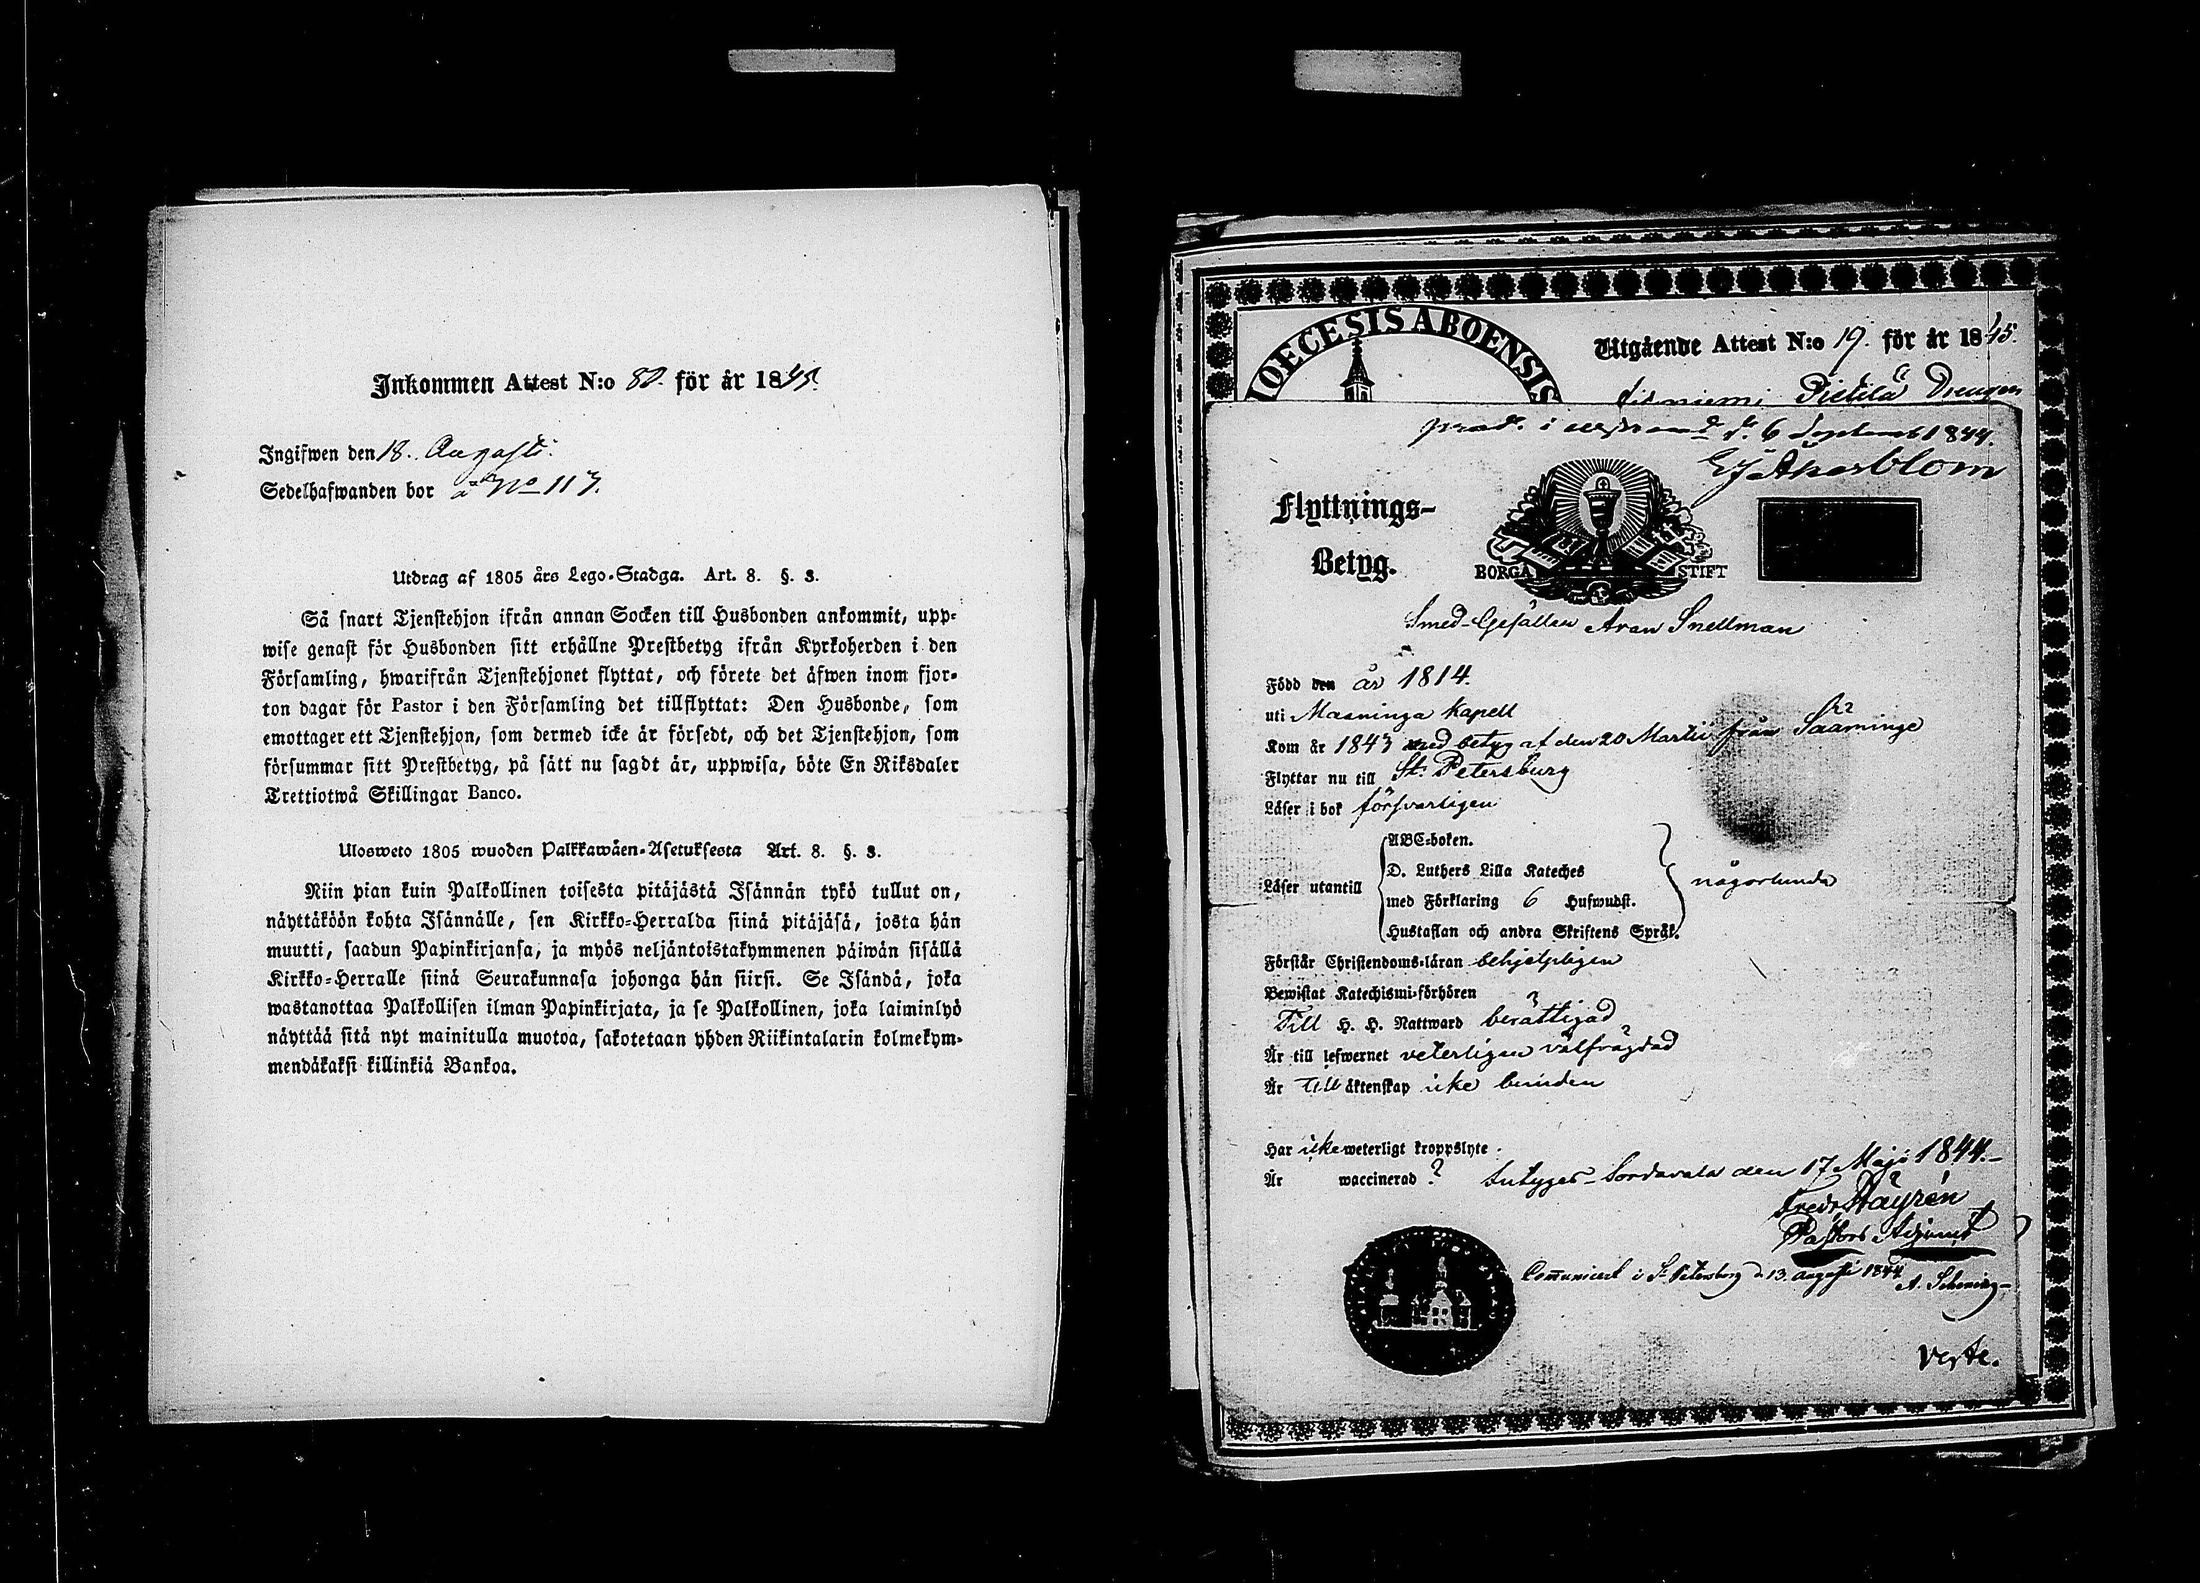 Inkommen Attest N:o 80. för år 1845.
Ingifwen den 18. Augusti.
Sedelhafwanden bor å No 117.
Utdrag af 1805 års Lego-Stadga. Art. 8. §. 3.
Så snart Tjenstehjon ifrån annan Socken till Husbonden ankommit, upp-
wise genast för Husbonden sitt erhållne Prestbetyg ifrån Kyrkoherden i den
Församling, hwarifrån Tjenstehjonet flyttat, och förete det äfwen inom fjor-
ton dagar för Pastor i den Församling det tillflyttat: Den Husbonde, som
emottager ett Tjenstehjon, som dermed icke är försedt, och det Tjenstehjon, som
försummar sitt Prestbetyg, på sätt nu sagdt är, uppwisa, böte En Riksdaler
Trettiotwå Skillingar Banco.
Ulosweto 1805 wuoden Palkkawäen-Asetuksesta Art. 8. §. 3.
Niin pian kuin Palkollinen toisesta pitäjästä Isännän tykö tullut on,
näyttäköön kohta Isännälle, sen Kirkko-Herralda siinä pitäjäsä, josta hän
muutti, saadun Papinkirjansa, ja myös neljäntoistakymmenen päiwän sisällä
Kirkko-Herralle siinä Seurakunnasa johonga hän siirsi. Se Isändä, joka
wastanottaa Palkollisen ilman Papinkirjata, ja se Palkollinen, joka laiminlyö
näyttää sitä nyt mainitulla muotoa, sakotetaan yhden Riikintalarin kolmekym-
mendäkaksi killinkiä Bankoa.
DIOECESIS ABOENSIS
Utgående Attest N:o 19. för år 1845.
Pietilä Drengen
i d. 6 September 1844.
Åkerblom
Flyttnings-
Betyg.
BORGÅ STIFT
Smed-Gesällen Aron Snellman
Född den år 1814.
uti Maaninga Kapell
Kom år 1843 med betyg af den 20 Martii från Sääminge
Flyttar nu till St. Petersburg
Läser i bok försvarligen
Läser utantill
ABC-boken.
D. Luthers Lilla Kateches
med Förklaring 6 Hufwudst.
Hustaflan och andra Skriftens Språk.
någorlunda
Förstår Christendoms-läran behjelpligen
Bewistat Katechismi-förhören
Till H. H. Nattward berättigad
Är till lefwernet veterligen välfrägdad
Är till äktenskap icke bunden
Har icke weterligt kroppslyte.
Är waccinerad ?
betygar Sordavala den 17 Maji 1844.
Fredr. Häyrén
Pastors Adjunct
Communicerat i St. Petersburg d. 13. Augusti 1844
verte.